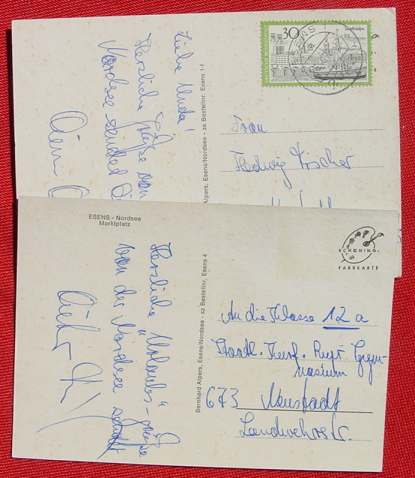 30
Liebe
Herzliche Grüße von
Nordsee sendet
Bernhard Alpers, Esens/Nordsee - zu Bestellnr. Esens 1-1
Frau
Hedwig Fischer
ESENS - Nordsee
Marktplatz
Herzliche "Urlaubs"-Grüße
von der Nordsee
Bernhard Alpers, Esens/Nordsee - zu Bestellnr. Esens 4
SCHÖNING
FARBKARTE
An die Klasse 12 a
Staatl. Kurf. Rupr. Gym-
nasium
673 Neustadt
Landwehrstr.